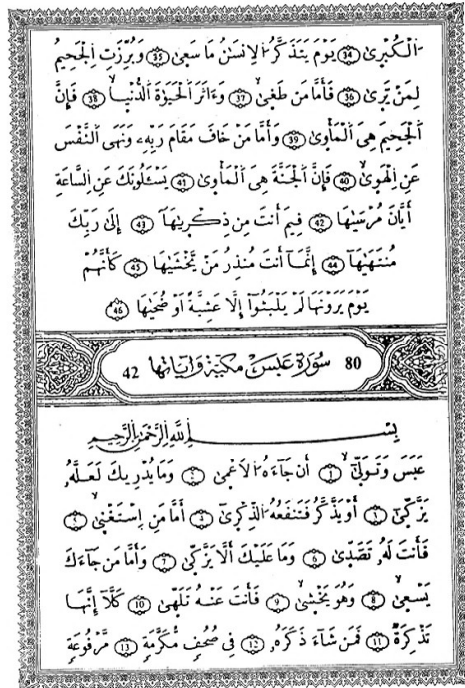 اَ۬لْكُبْرۭيٰ 34 يَوْمَ يَتَذَكَّرُ اُ۬لِانسَٰنُ مَا سَع۪يٰ 35 وَبُرِّزَتِ اِ۬لْجَحِيمُ
لِمَنْ يَّر۪يٰ 36 فَأَمَّا مَن طَغ۪يٰ 37 وَءَاثَرَ اَ۬لْحَيَوٰةَ اَ۬لدُّنْي۪ا 38 فَإِنَّ
اَ۬لْجَحِيمَ هِيَ اَ۬لْمَأْو۪يٰ 39 وَأَمَّا مَنْ خَافَ مَقَامَ رَبِّهِۦ وَنَهَى اَ۬لنَّفْسَ
عَنِ اِ۬لْهَو۪يٰ 40 فَإِنَّ اَ۬لْجَنَّةَ هِيَ اَ۬لْمَأْو۪يٰ 41 يَسْـَٔلُونَكَ عَنِ اِ۬لسَّاعَةِ
أَيَّانَ مُرْس۪يٰهَا 42 فِيمَ أَنتَ مِن ذِكْر۪يٰهَآ 43 إِلَىٰ رَبِّكَ
مُنتَه۪يٰهَآ 44 إِنَّمَآ أَنتَ مُنذِرُ مَنْ يَّخْش۪يٰهَا 45 كَأَنَّهُمْ
يَوْمَ يَرَوْنَهَا لَمْ يَلْبَثُوٓاْ إِلَّا عَشِيَّةً اَوْ ضُح۪يٰهَا 46
80 سُورَةُ عَبَسَ مَكِّيَّة وَءَايَاتُهَا 42
بِسْمِ اِ۬للَّهِ اِ۬لرَّحْمَٰنِ اِ۬لرَّحِيمِ
عَبَسَ وَتَوَلّ۪يٰٓ 1 أَن جَآءَهُ اُ۬لَاعْم۪يٰ 2 وَمَا يُدْرِيكَ لَعَلَّهُۥ
يَزَّكّ۪يٰٓ 3 أَوْ يَذَّكَّرُ فَتَنفَعُهُ اُ۬لذِّكْر۪يٰٓ 4 أَمَّا مَنِ اِ۪سْتَغْن۪يٰ 5
فَأَنتَ لَهُۥ تَصَّدّ۪يٰ 6 وَمَا عَلَيْكَ أَلَّا يَزَّكّ۪يٰ 7 وَأَمَّا مَن جَآءَكَ
يَسْع۪يٰ 8 وَهُوَ يَخْش۪يٰ 9 فَأَنتَ عَنْهُ تَلَهّ۪يٰ 10 كَلَّآ إِنَّهَا
تَذْكِرَةٌ 11 فَمَن شَآءَ ذَكَرَهُۥ 12 فِي صُحُفٍ مُّكَرَّمَةٍ 13 مَّرْفُوعَةٍ